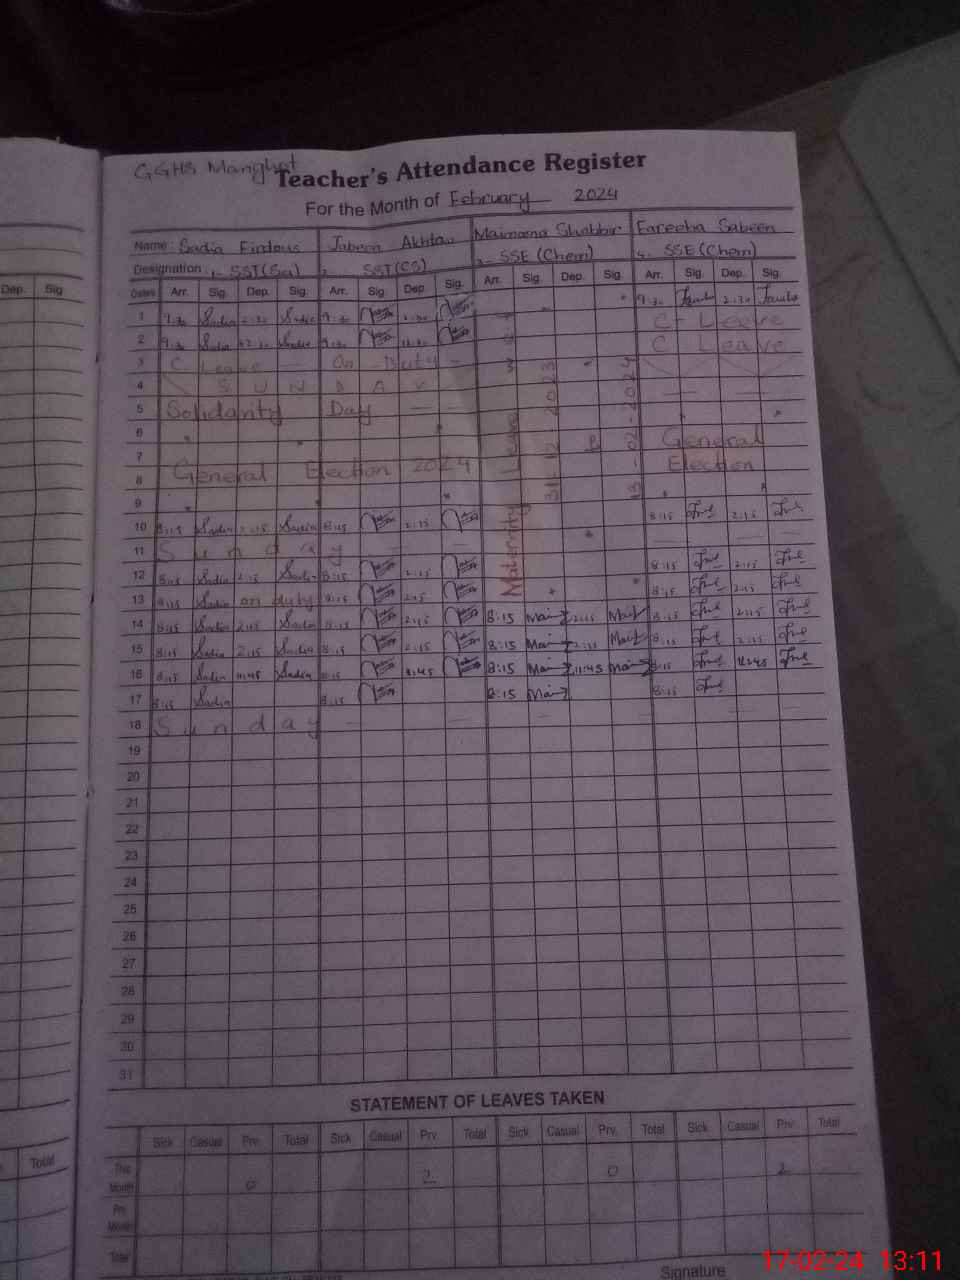 GGHS Manghot
Teacher's Attendance Register
For the Month of February 2024
Name: Sadia Firdous Jabeen Akhtar Maimoona Shabbir Fareeha Sabeen
Designation: 1- SST(Sci) 2- SST(CS) 3- SSE (Chem) 4. SSE (Chem)
Dep. Sig
Dates Arr. Sig. Dep. Sig. Arr. Sig. Dep. Sig. Arr. Sig. Dep. Sig. Arr. Sig. Dep. Sig.
1 9:30 Sadia 2:30 Sadia 9:30 2:30 9:30 2:30
2 9:30 Sadia 12:30 Sadia 9:30 12:30 C- Leave
3 C Leave — On Duty — C Leave
4 S U N D A Y
5 Solidarity Day — —
6
7 General Election
8 General Election 2024
9
Maternity Leave
31-12-2023
13-02-2024
10 8:15 Sadia 2:15 Sadia 8:15 2:15 8:15 2:15
11 S u n d a y
12 8:15 Sadia 2:15 Sadia 8:15 2:15 8:15 2:15
13 8:15 Sadia on duty 8:15 2:15 8:15 2:15
14 8:15 Sadia 2:15 Sadia 8:15 2:15 8:15 2:15 8:15 2:15
15 8:15 Sadia 2:15 Sadia 8:15 2:15 8:15 2:15 8:15 2:15
16 8:15 Sadia 11:45 Sadia 8:15 11:45 8:15 11:45 8:15 11:45
17 8:15 Sadia 8:15 8:15 8:15
18 S u n d a y
19
20
21
22
23
24
25
26
27
28
29
30
31
STATEMENT OF LEAVES TAKEN
Sick Casual Prv. Total Sick Casual Prv. Total Sick Casual Prv. Total Sick Casual Prv. Total
Total
This Month 0 2 0 2
Prv. Month
Total
Signature
17-02-24 13:11